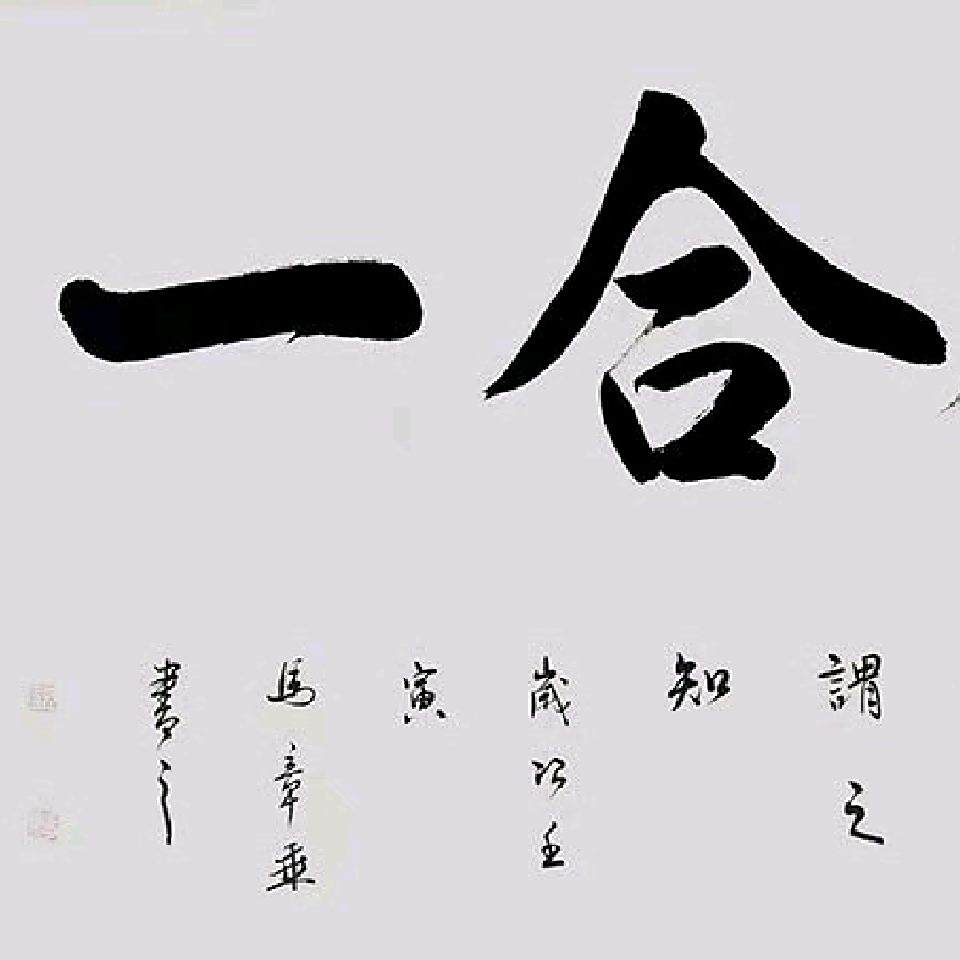 合一
謂之
知
歲次壬
寅
馬章乘
書之